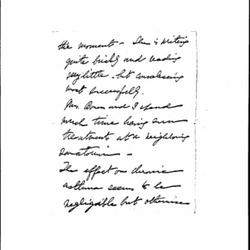 the moment - She is writing
quite briskly and reading
very little. but convalescing
most successfully.
Mrs. and I spend
much time having sun
treatment at a neighboring
sanatorium -
The effect on
asthma seems to be
negligable but otherwise